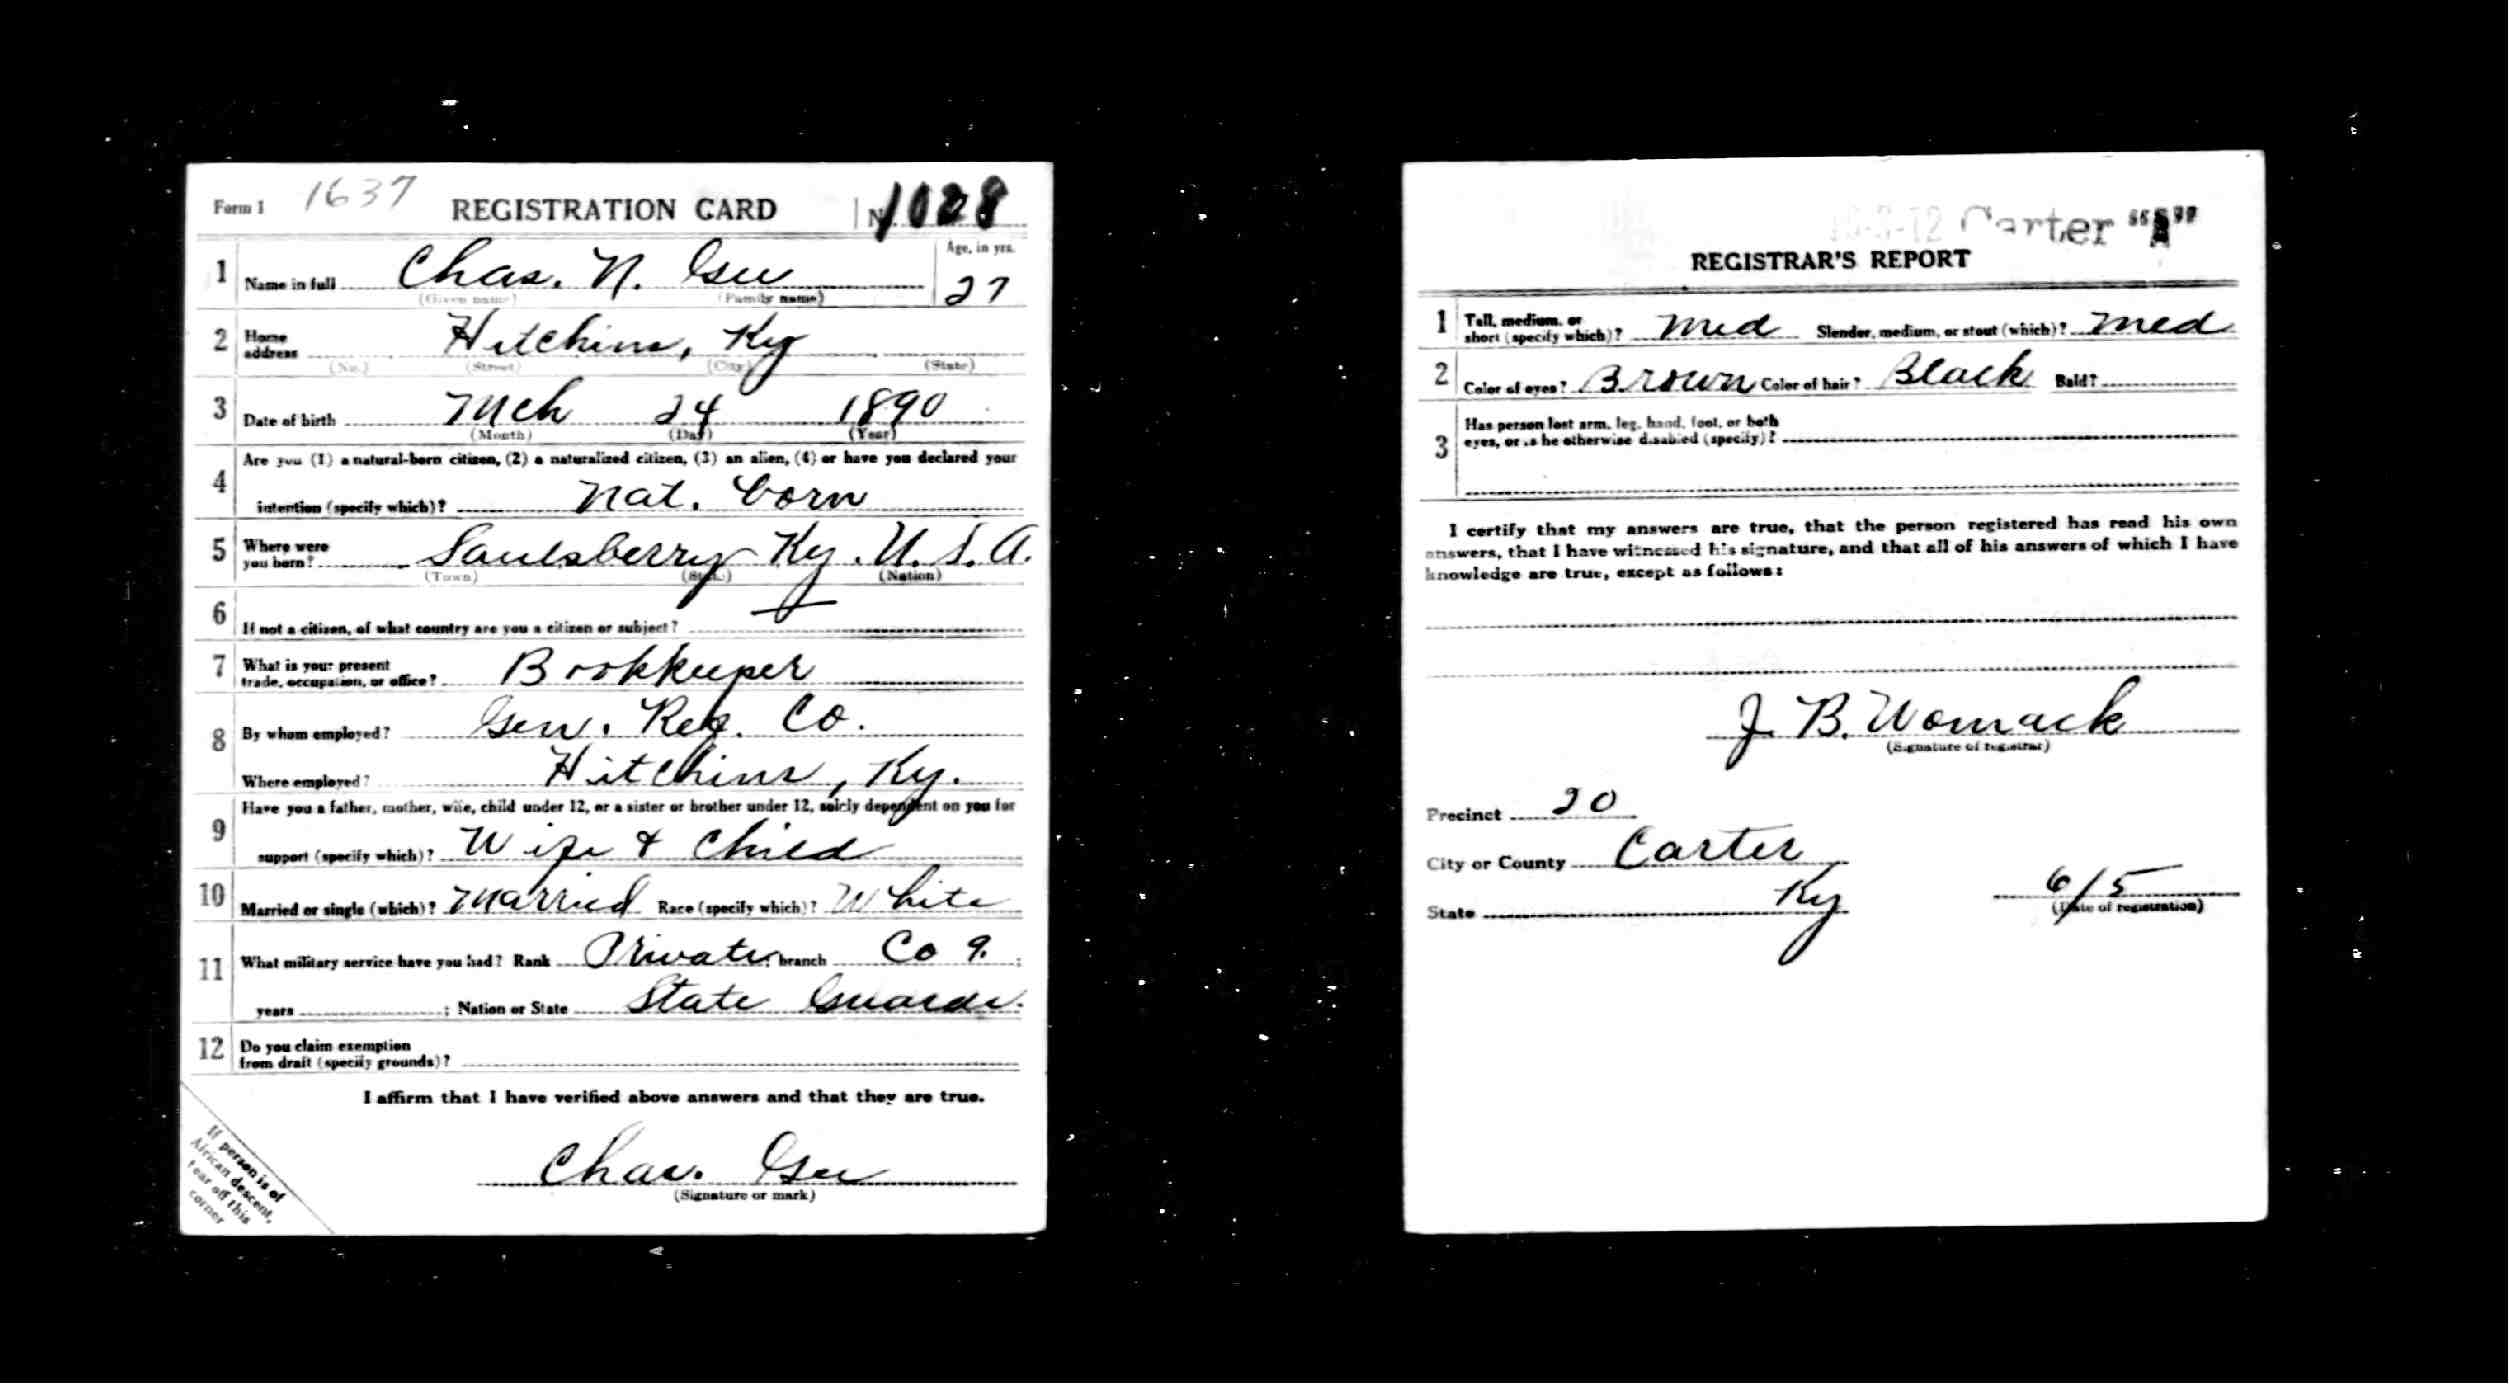 Form 1 1637 REGISTRATION CARD No. 1028
1 Name in full Chas. N. Gee Age, in yrs. 27
(Given name) (Family name)
2 Home address Hitchins, Ky
(No.) (Street) (City) (State)
3 Date of birth Mch 24 1890
(Month) (Day) (Year)
4 Are you (1) a natural-born citizen, (2) a naturalized citizen, (3) an alien, (4) or have you declared your
intention (specify which)? Nat. born
5 Where were you born? Saulsberry Ky. U.S.A.
(Town) (State) (Nation)
6 If not a citizen, of what country are you a citizen or subject?
7 What is your present trade, occupation, or office? Bookkeeper
8 By whom employed? Gen. Ref. Co.
Where employed? Hitchins, Ky.
9 Have you a father, mother, wife, child under 12, or a sister or brother under 12, solely dependent on you for
support (specify which)? Wife & Child
10 Married or single (which)? Married Race (specify which)? White
11 What military service have you had? Rank Private; branch Co 9.;
years ; Nation or State State Guards.
12 Do you claim exemption
from draft (specify grounds)?
I affirm that I have verified above answers and that they are true.
Chas. Gee
(Signature or mark)
If person is of
African descent,
tear off this
corner
Carter "A"
REGISTRAR'S REPORT
1 Tall, medium, or short (specify which)? Med Slender, medium, or stout (which)? Med
2 Color of eyes? Brown Color of hair? Black Bald?
3 Has person lost arm, leg, hand, foot, or both
eyes, or is he otherwise disabled (specify)?
I certify that my answers are true, that the person registered has read his own
answers, that I have witnessed his signature, and that all of his answers of which I have
knowledge are true, except as follows:
J. B. Womack
(Signature of registrar)
Precinct 20
City or County Carter
State Ky 6/5
(Date of registration)